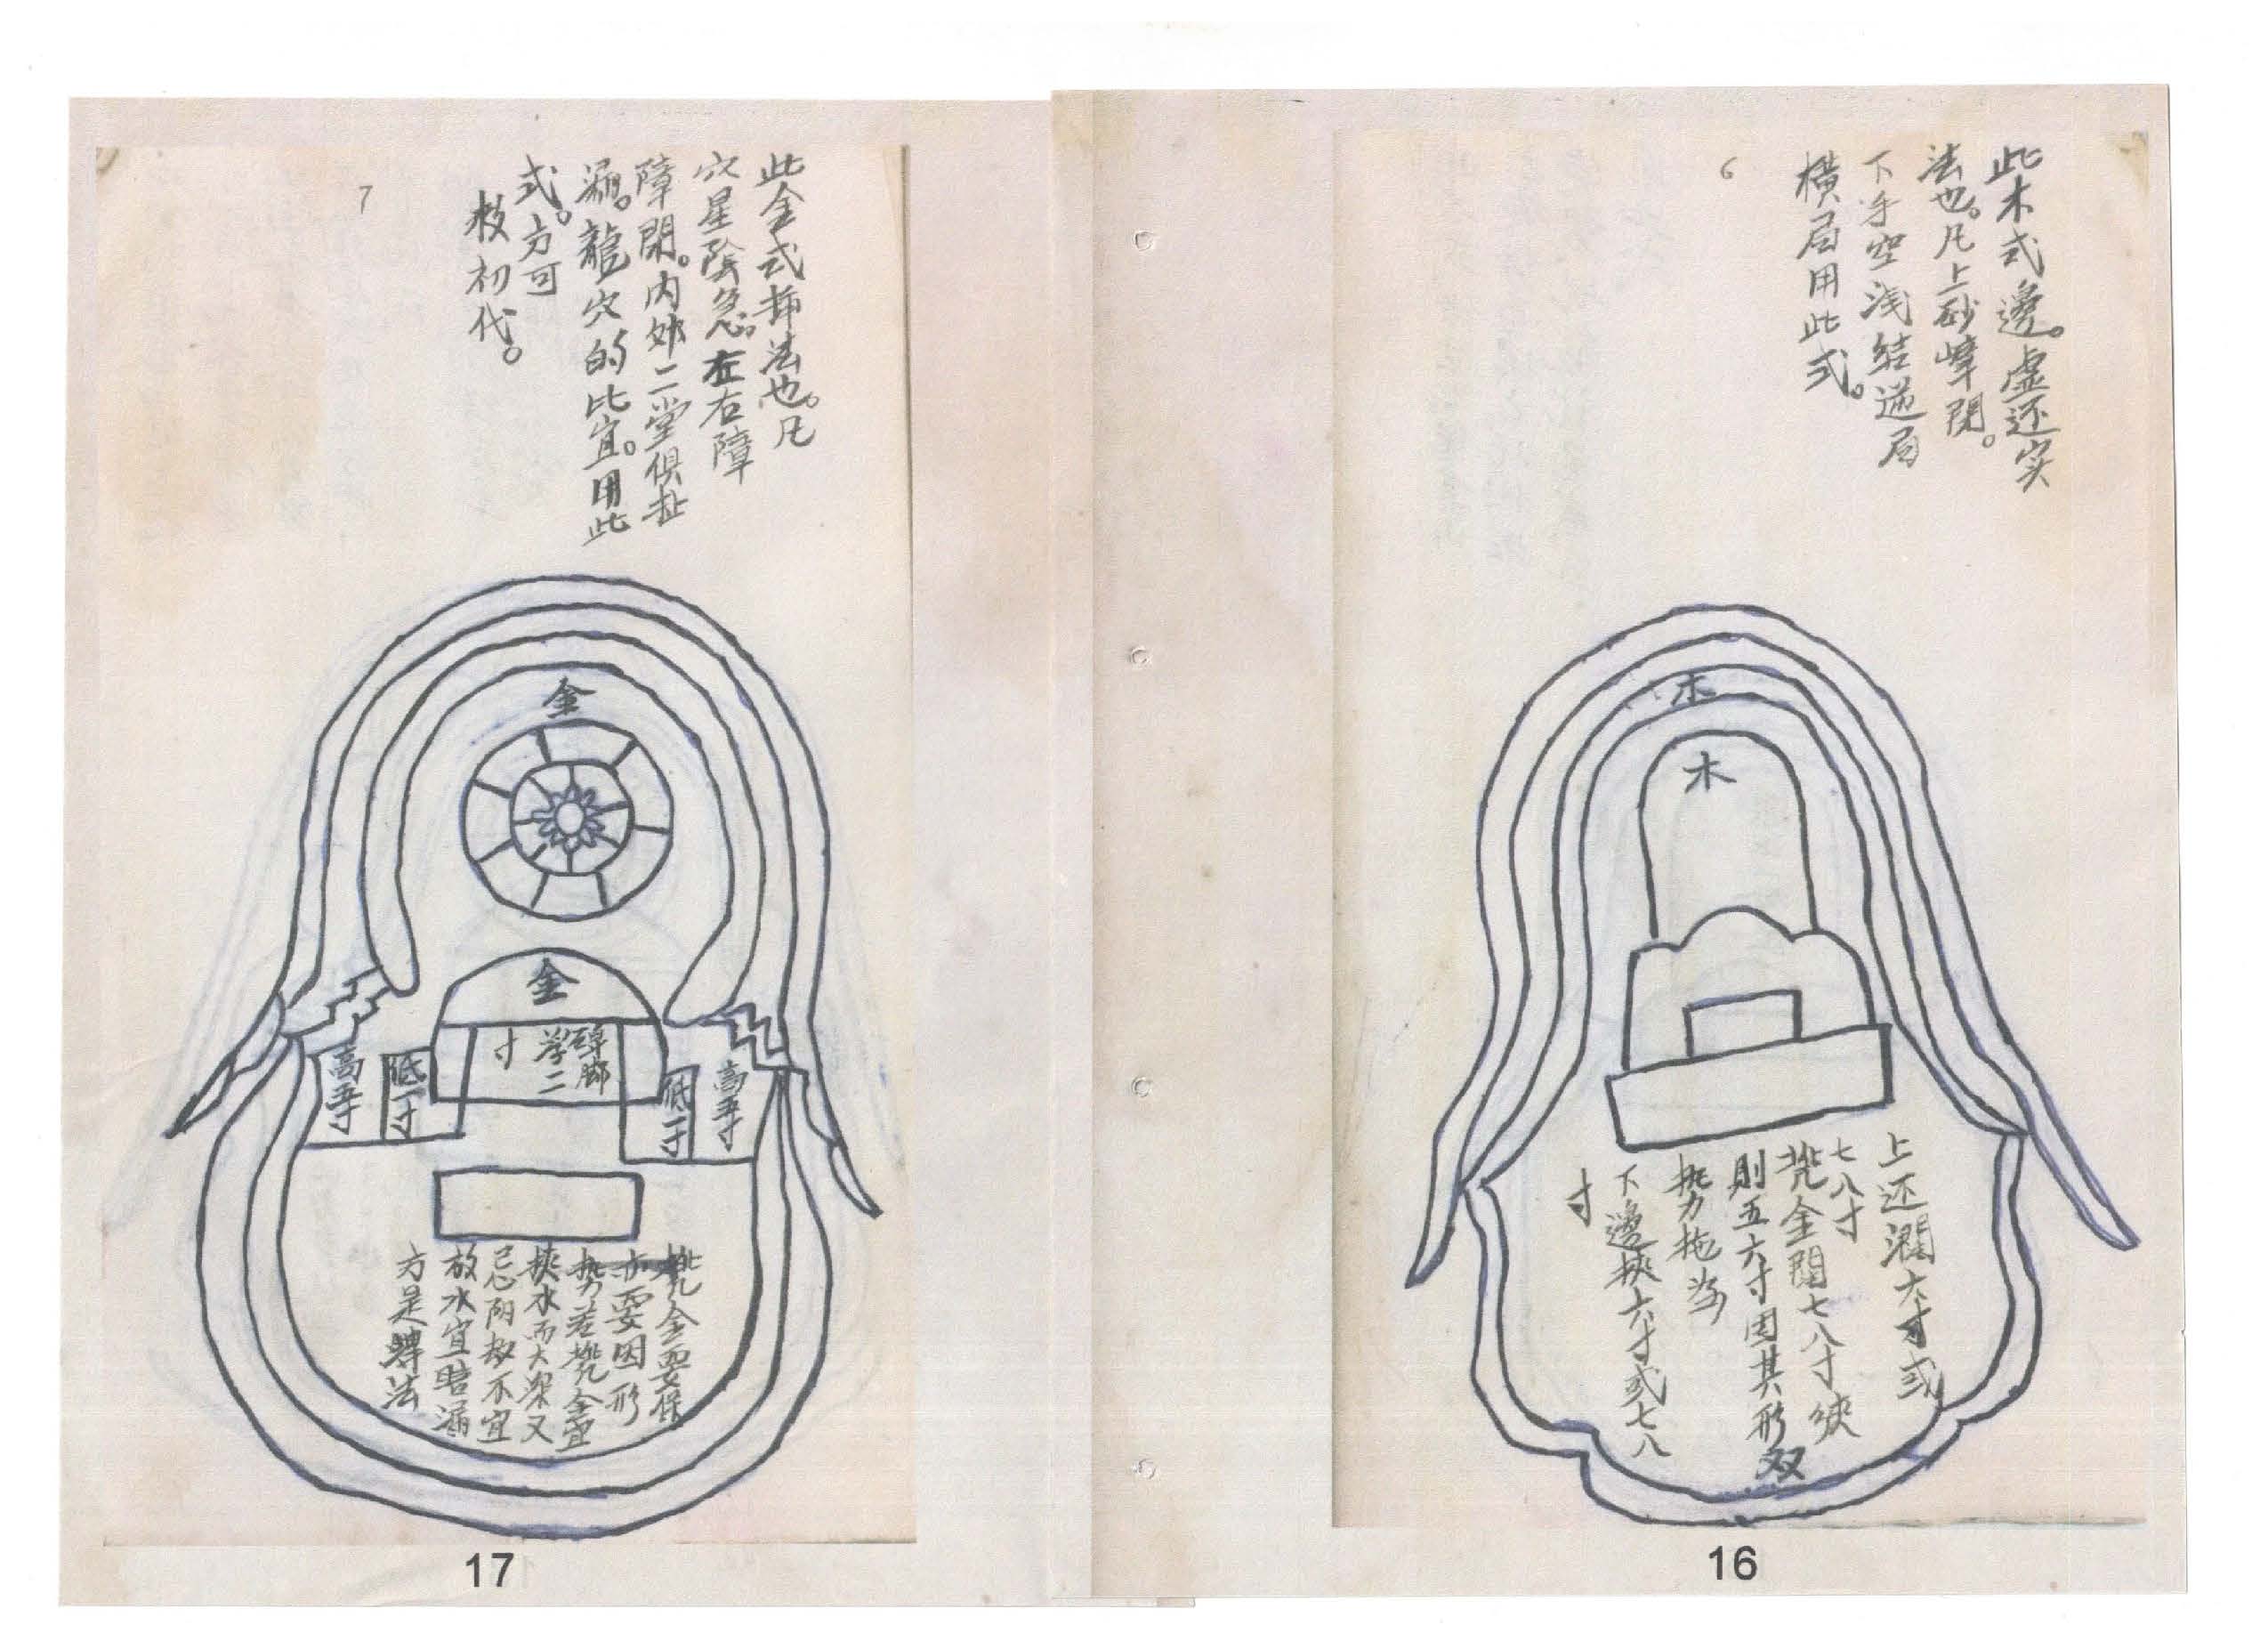 此木式邊。虛还实
法也。凡上砂嶂閉。
下手空浅结逆局
橫局用此式。
6
木
木
上还濶六寸或
七八寸
兠金闊七八寸狹
則五六寸因其形
势拖当
下邊挾六寸或七八
寸
双
16
此金式抑法也。凡
穴星陰急。左右障
障閉。内外二堂俱扯
漏。龍穴的比宜。用此
式。方可
救初代。
7
金
金
碑脚
学二
寸
高五寸
低一寸
低一寸
高五寸
兠金要保
要因形
势若兠金宜
挾水而大深又
忌阴
放水宜暗漏
方是
法
17